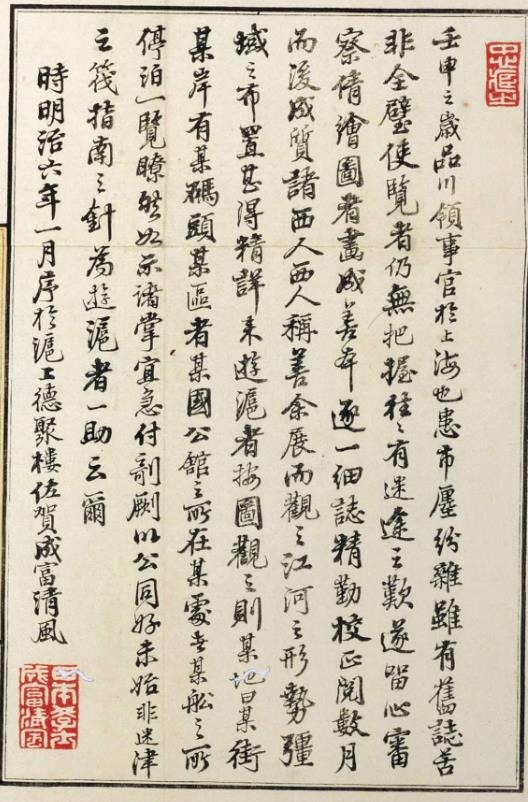 壬申之歲品川領事官於上海也患市廛紛雜雖有舊誌苦
非全璧使覽者仍無把握往々有迷途之歎遂留心審
察倩繪圖者畫成善本逐一細誌精勤校正閱數月
而後成質諸西人西人稱善余展而觀之江河之形勢彊
域之布置甚得精詳来遊滬者按圖觀之則某地曰某街
某岸有某碼頭某區者某國公舘之所在某處者某船之所
停泊一覽瞭然如示諸掌宜急付剞劂以公同好未始非迷津
之筏指南之針為遊滬者一助云爾
時明治六年一月序於滬上德聚樓佐賀成富清風